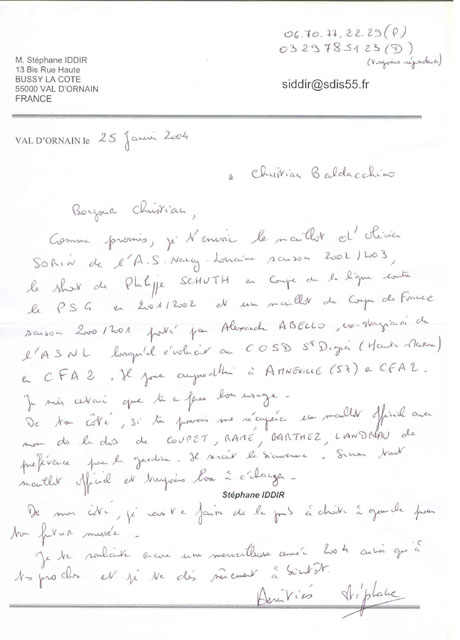 06.70.77.22.29 (P)
03 29 78 51 23 (D)
M. Stéphane IDDIR
13 Bis Rue Haute
BUSSY LA COTE
55000 VAL D'ORNAIN
FRANCE
siddir@sdis55.fr
VAL D'ORNAIN le 25 Janvier 2004
à Christian Baldacchino
Bonjour Christian,
Comme promis, je t'envoie le maillot d'Olivier
SORIN de l'A.S. Nancy-Lorraine saison 2002/2003,
le short de Philippe SCHUTH en Coupe de la ligue contre
le PSG en 2001/2002 et un maillot de Coupe de France
saison 2000/2001 porté par Alexandre ABELLO, ex-stagiaire de
l'ASNL lorsqu'il évoluait au COSD St Dizier (Haute Marne)
en CFA2. Il joue aujourd'hui à AMNEVILLE (57) en CFA2.
Je suis certain que tu en feras bon usage.
De ton côté, si tu pouvais me récupérer un maillot officiel avec
nom dans le dos de COUPET, RAMÉ, BARTHEZ, LANDREAU de
préférence pour le gardien. Il serait le bienvenu. Sinon tout
maillot officiel est toujours bon à échanger.
Stéphane IDDIR
De mon côté, je vais te faire de la pub à droite à gauche pour
ton futur musée.
Je te souhaite encore une merveilleuse année 2004 ainsi qu'à
tes proches et je te dis sûrement à bientôt.
Amitiés Stéphane